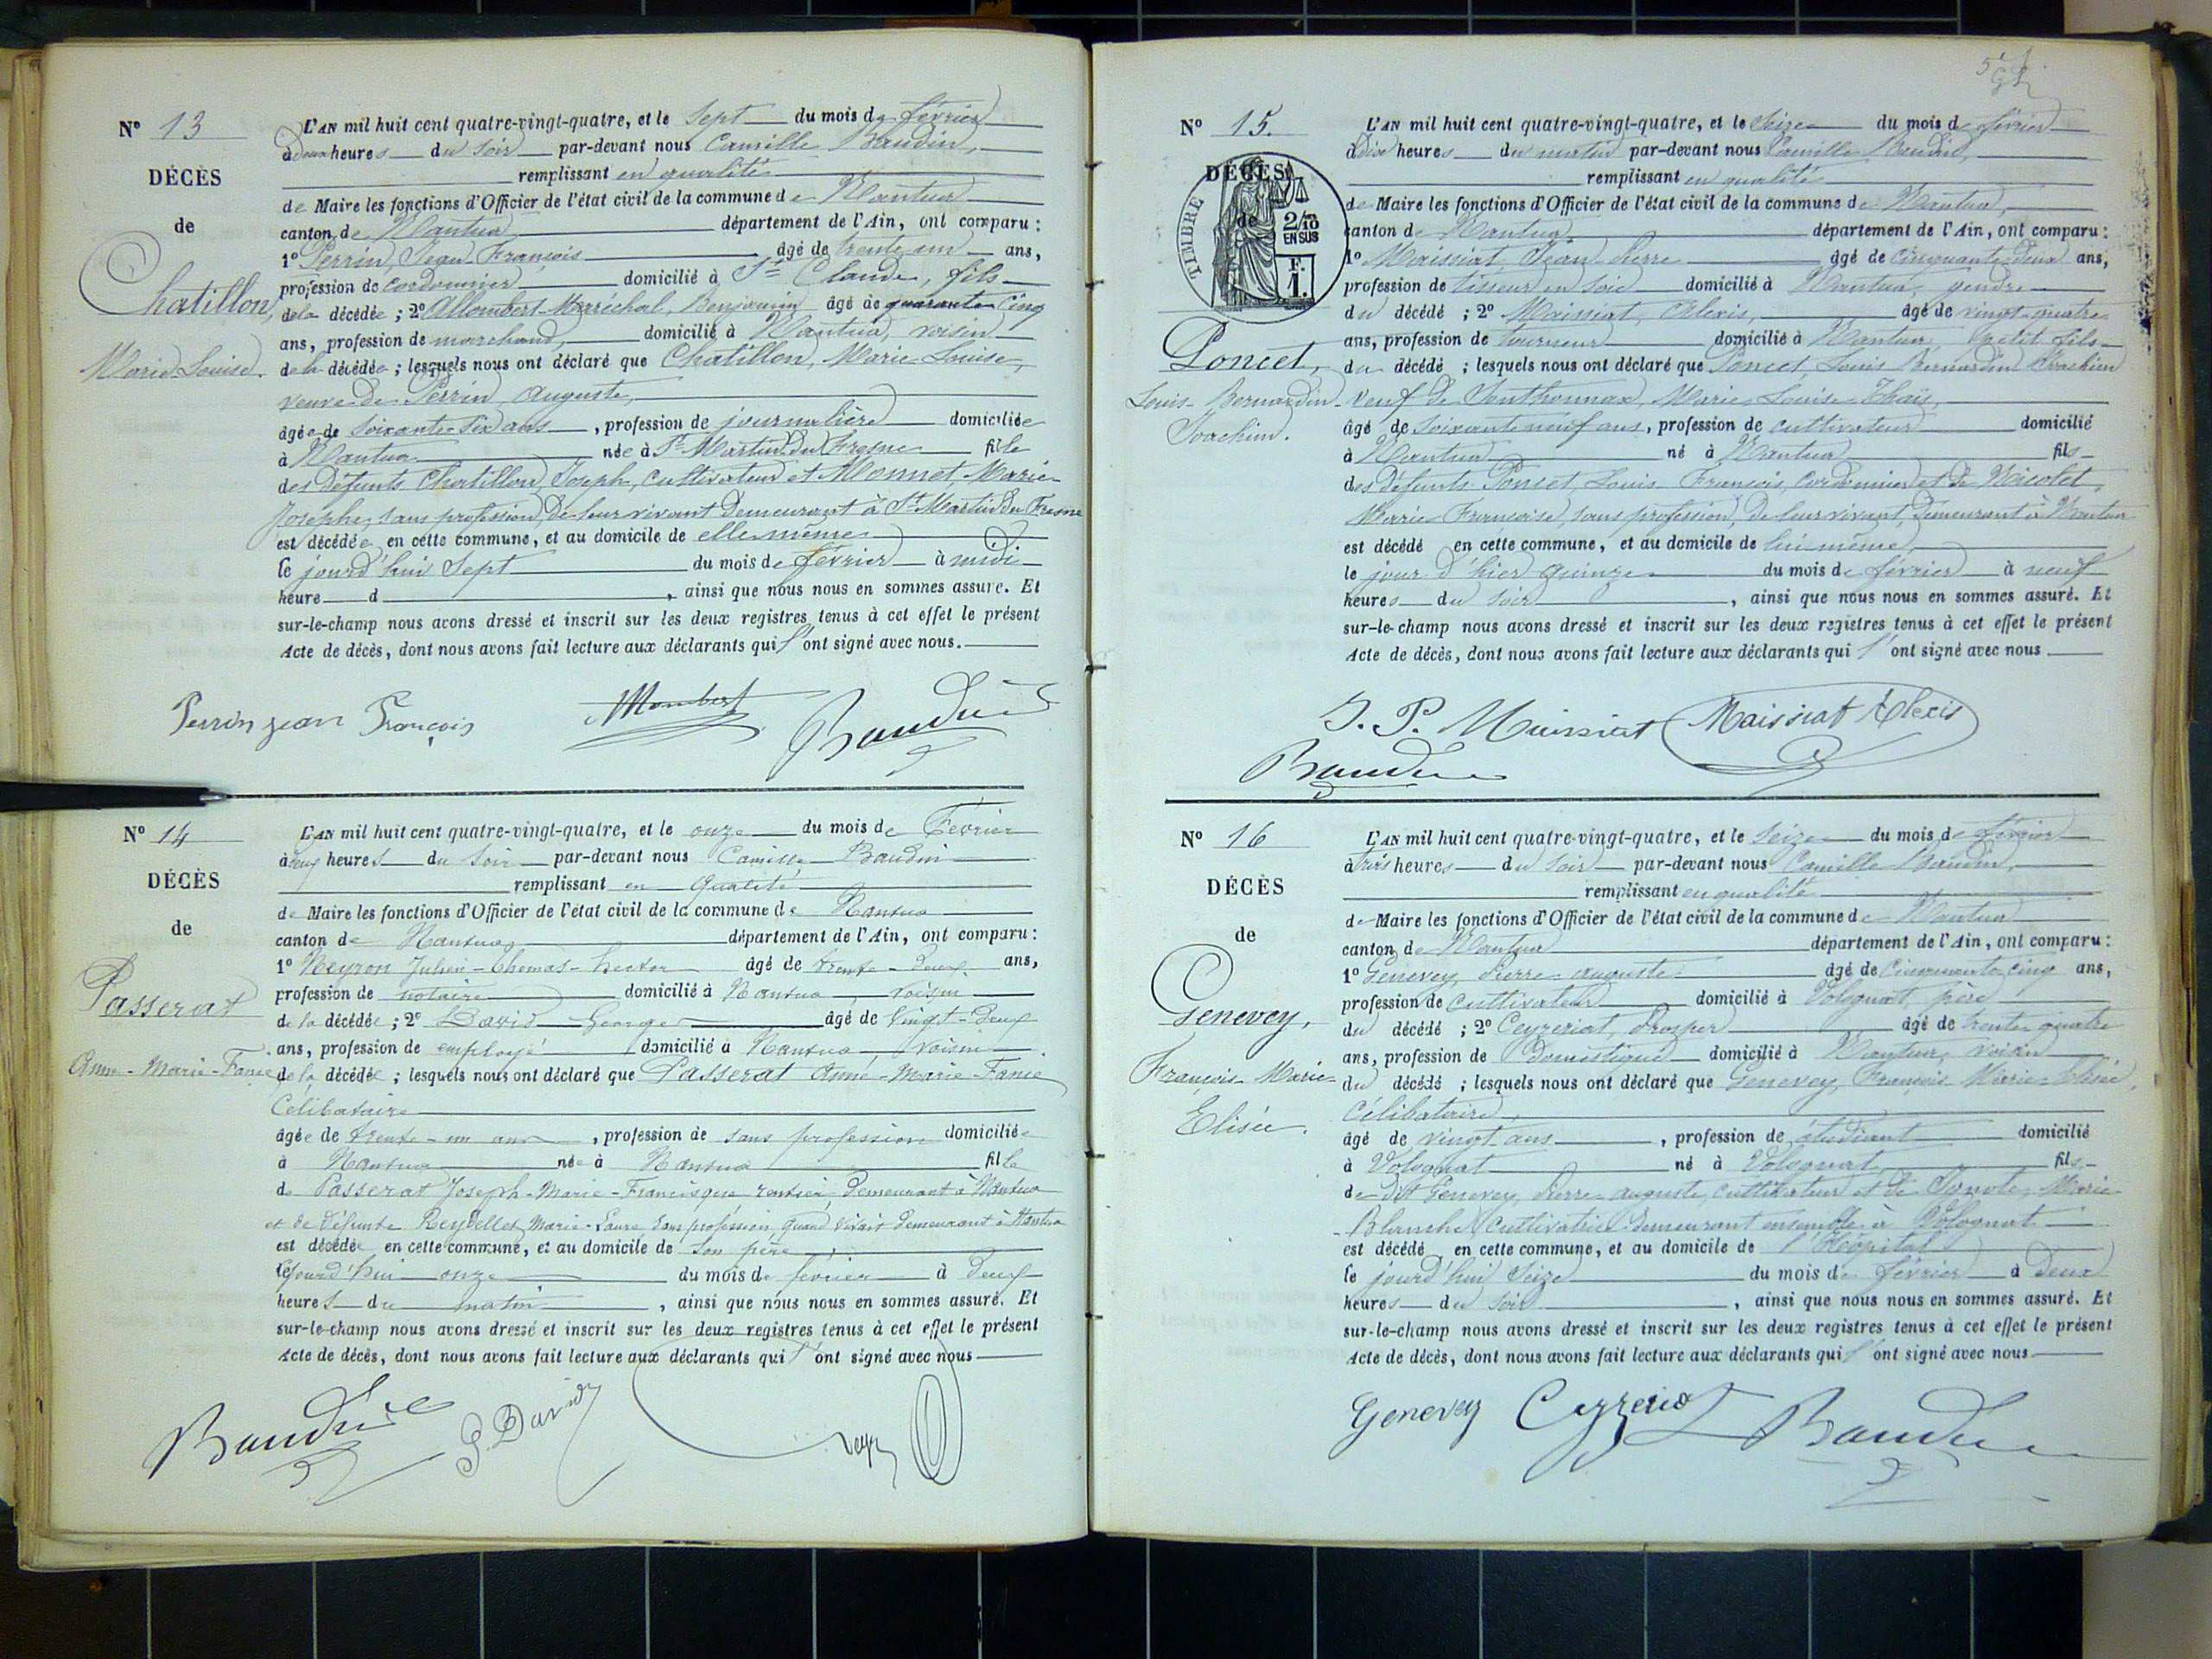 Nº 13
DÉCÈS
de
Chatillon,
Marie Louise.
L'AN mil huit cent quatre-vingt-quatre, et le Sept du mois de février
à deux heures du soir par-devant nous Camille Baudin,
remplissant en qualité
de Maire les fonctions d'Officier de l'état civil de la commune de Nantua
canton de Nantua département de l'Ain, ont comparu :
1º Perrin, Jean François âgé de trente un ans,
profession de cordonnier domicilié à St Claude, fils
de la décédée ; 2º Allombert-Maréchal, Benjamin âgé de quarante cinq
ans, profession de marchand, domicilié à Nantua, voisin
de la décédée ; lesquels nous ont déclaré que Chatillon, Marie Louise,
veuve de Perrin Auguste,
âgée de soixante six ans , profession de journalière domiciliée
à Nantua née à St Martin du Fresne fille
des défunts Chatillon Joseph, cultivateur et Monnet Marie
Josephe, sans profession, de leur vivant demeurant à St Martin du Fresne
est décédée en cette commune, et au domicile de elle même
le jourd'hui Sept du mois de février à midi
heure d , ainsi que nous nous en sommes assuré. Et
sur-le-champ nous avons dressé et inscrit sur les deux registres tenus à cet effet le présent
Acte de décès, dont nous avons fait lecture aux déclarants qui l'ont signé avec nous.
Perrin jean François
Baudin
Nº 14
DÉCÈS
de
Passerat
Anne-Marie-Fanie
L'AN mil huit cent quatre-vingt-quatre, et le onze du mois de Février
à deux heures du soir par-devant nous Camille Baudin
remplissant en qualité
de Maire les fonctions d'Officier de l'état civil de la commune de Nantua
canton de Nantua département de l'Ain, ont comparu :
1º Neyron Julien-Thomas-Hector âgé de trente-deux ans,
profession de notaire domicilié à Nantua, voisin
de la décédée ; 2º David George âgé de vingt-deux
ans, profession de employé domicilié à Nantua, voisin
de la décédée ; lesquels nous ont déclaré que Passerat Anne-Marie-Fanie
Célibataire
âgée de trente-un ans , profession de sans profession domiciliée
à Nantua née à Nantua fille
de Passerat Joseph-Marie-Francisque rentier demeurant à Nantua
et de défunte Reydellet Marie-Laure sans profession quand vivait demeurant à Nantua
est décédée en cette commune, et au domicile de son père
le jourd'hui onze du mois de février à deux
heures du matin , ainsi que nous nous en sommes assuré. Et
sur-le-champ nous avons dressé et inscrit sur les deux registres tenus à cet effet le présent
Acte de décès, dont nous avons fait lecture aux déclarants qui l'ont signé avec nous
Baudin
G. David
Nº 15
DÉCÈS
de
TIMBRE
2/10
EN SUS
F.
1.
Poncet,
Louis-Bernardin
Joachim.
L'AN mil huit cent quatre-vingt-quatre, et le Seize du mois de février
à dix heures du matin par-devant nous Camille Baudin,
remplissant en qualité
de Maire les fonctions d'Officier de l'état civil de la commune de Nantua,
canton de Nantua département de l'Ain, ont comparu :
1º Maissiat Jean Pierre âgé de cinquante deux ans,
profession de tisseur en soie domicilié à Nantua, gendre
du décédé ; 2º Maissiat, Alexis, âgé de vingt-quatre
ans, profession de tourneur domicilié à Nantua petit fils
du décédé ; lesquels nous ont déclaré que Poncet, Louis Bernardin Joachim
veuf de Jeanthonnax, Marie Louise Thaïs,
âgé de soixante neuf ans, profession de cultivateur domicilié
à Nantua né à Nantua fils
des défunts Poncet, Louis François, cordonnier et de Nicolet,
Marie Françoise, sans profession, de leur vivant, demeurant à Nantua
est décédé en cette commune, et au domicile de lui même,
le jour d'hier quinze du mois de février à neuf
heures du soir , ainsi que nous nous en sommes assuré. Et
sur-le-champ nous avons dressé et inscrit sur les deux registres tenus à cet effet le présent
Acte de décès, dont nous avons fait lecture aux déclarants qui l'ont signé avec nous
J. P. Maissiat Maissiat Alexis
Baudin
Nº 16
DÉCÈS
de
Genevey,
François-Marie
Elisée.
L'AN mil huit cent quatre-vingt-quatre, et le Seize du mois de février
à trois heures du soir par-devant nous Camille Baudin,
remplissant en qualité
de Maire les fonctions d'Officier de l'état civil de la commune de Nantua
canton de Nantua département de l'Ain, ont comparu :
1º Genevey, Pierre-Auguste âgé de cinquante cinq ans,
profession de cultivateur domicilié à Volognat, père
du décédé ; 2º Ceyzeriat, Prosper âgé de trente quatre
ans, profession de Domestique domicilié à Nantua, voisin
du décédé ; lesquels nous ont déclaré que Genevey, François Marie Elisée,
célibataire,
âgé de vingt ans , profession de étudiant domicilié
à Volognat né à Volognat fils
de dit Genevey, Pierre Auguste, cultivateur et de Marie
Blanche, cultivatrice demeurant ensemble à Volognat
est décédé en cette commune, et au domicile de l'Hôpital
le jourd'hui Seize du mois de février à deux
heures du soir , ainsi que nous nous en sommes assuré. Et
sur-le-champ nous avons dressé et inscrit sur les deux registres tenus à cet effet le présent
Acte de décès, dont nous avons fait lecture aux déclarants qui l'ont signé avec nous
Genevey Ceyzeriat Baudin